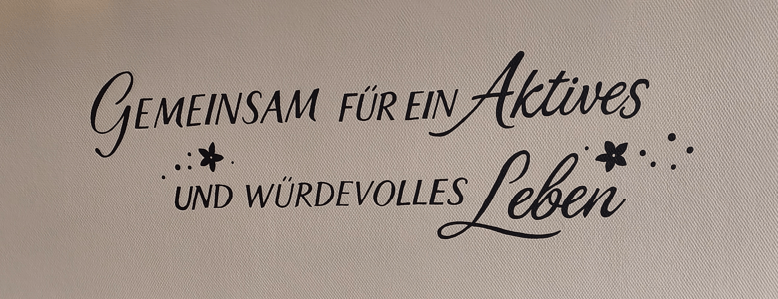 GEMEINSAM FÜR EIN Aktives
UND WÜRDEVOLLES Leben